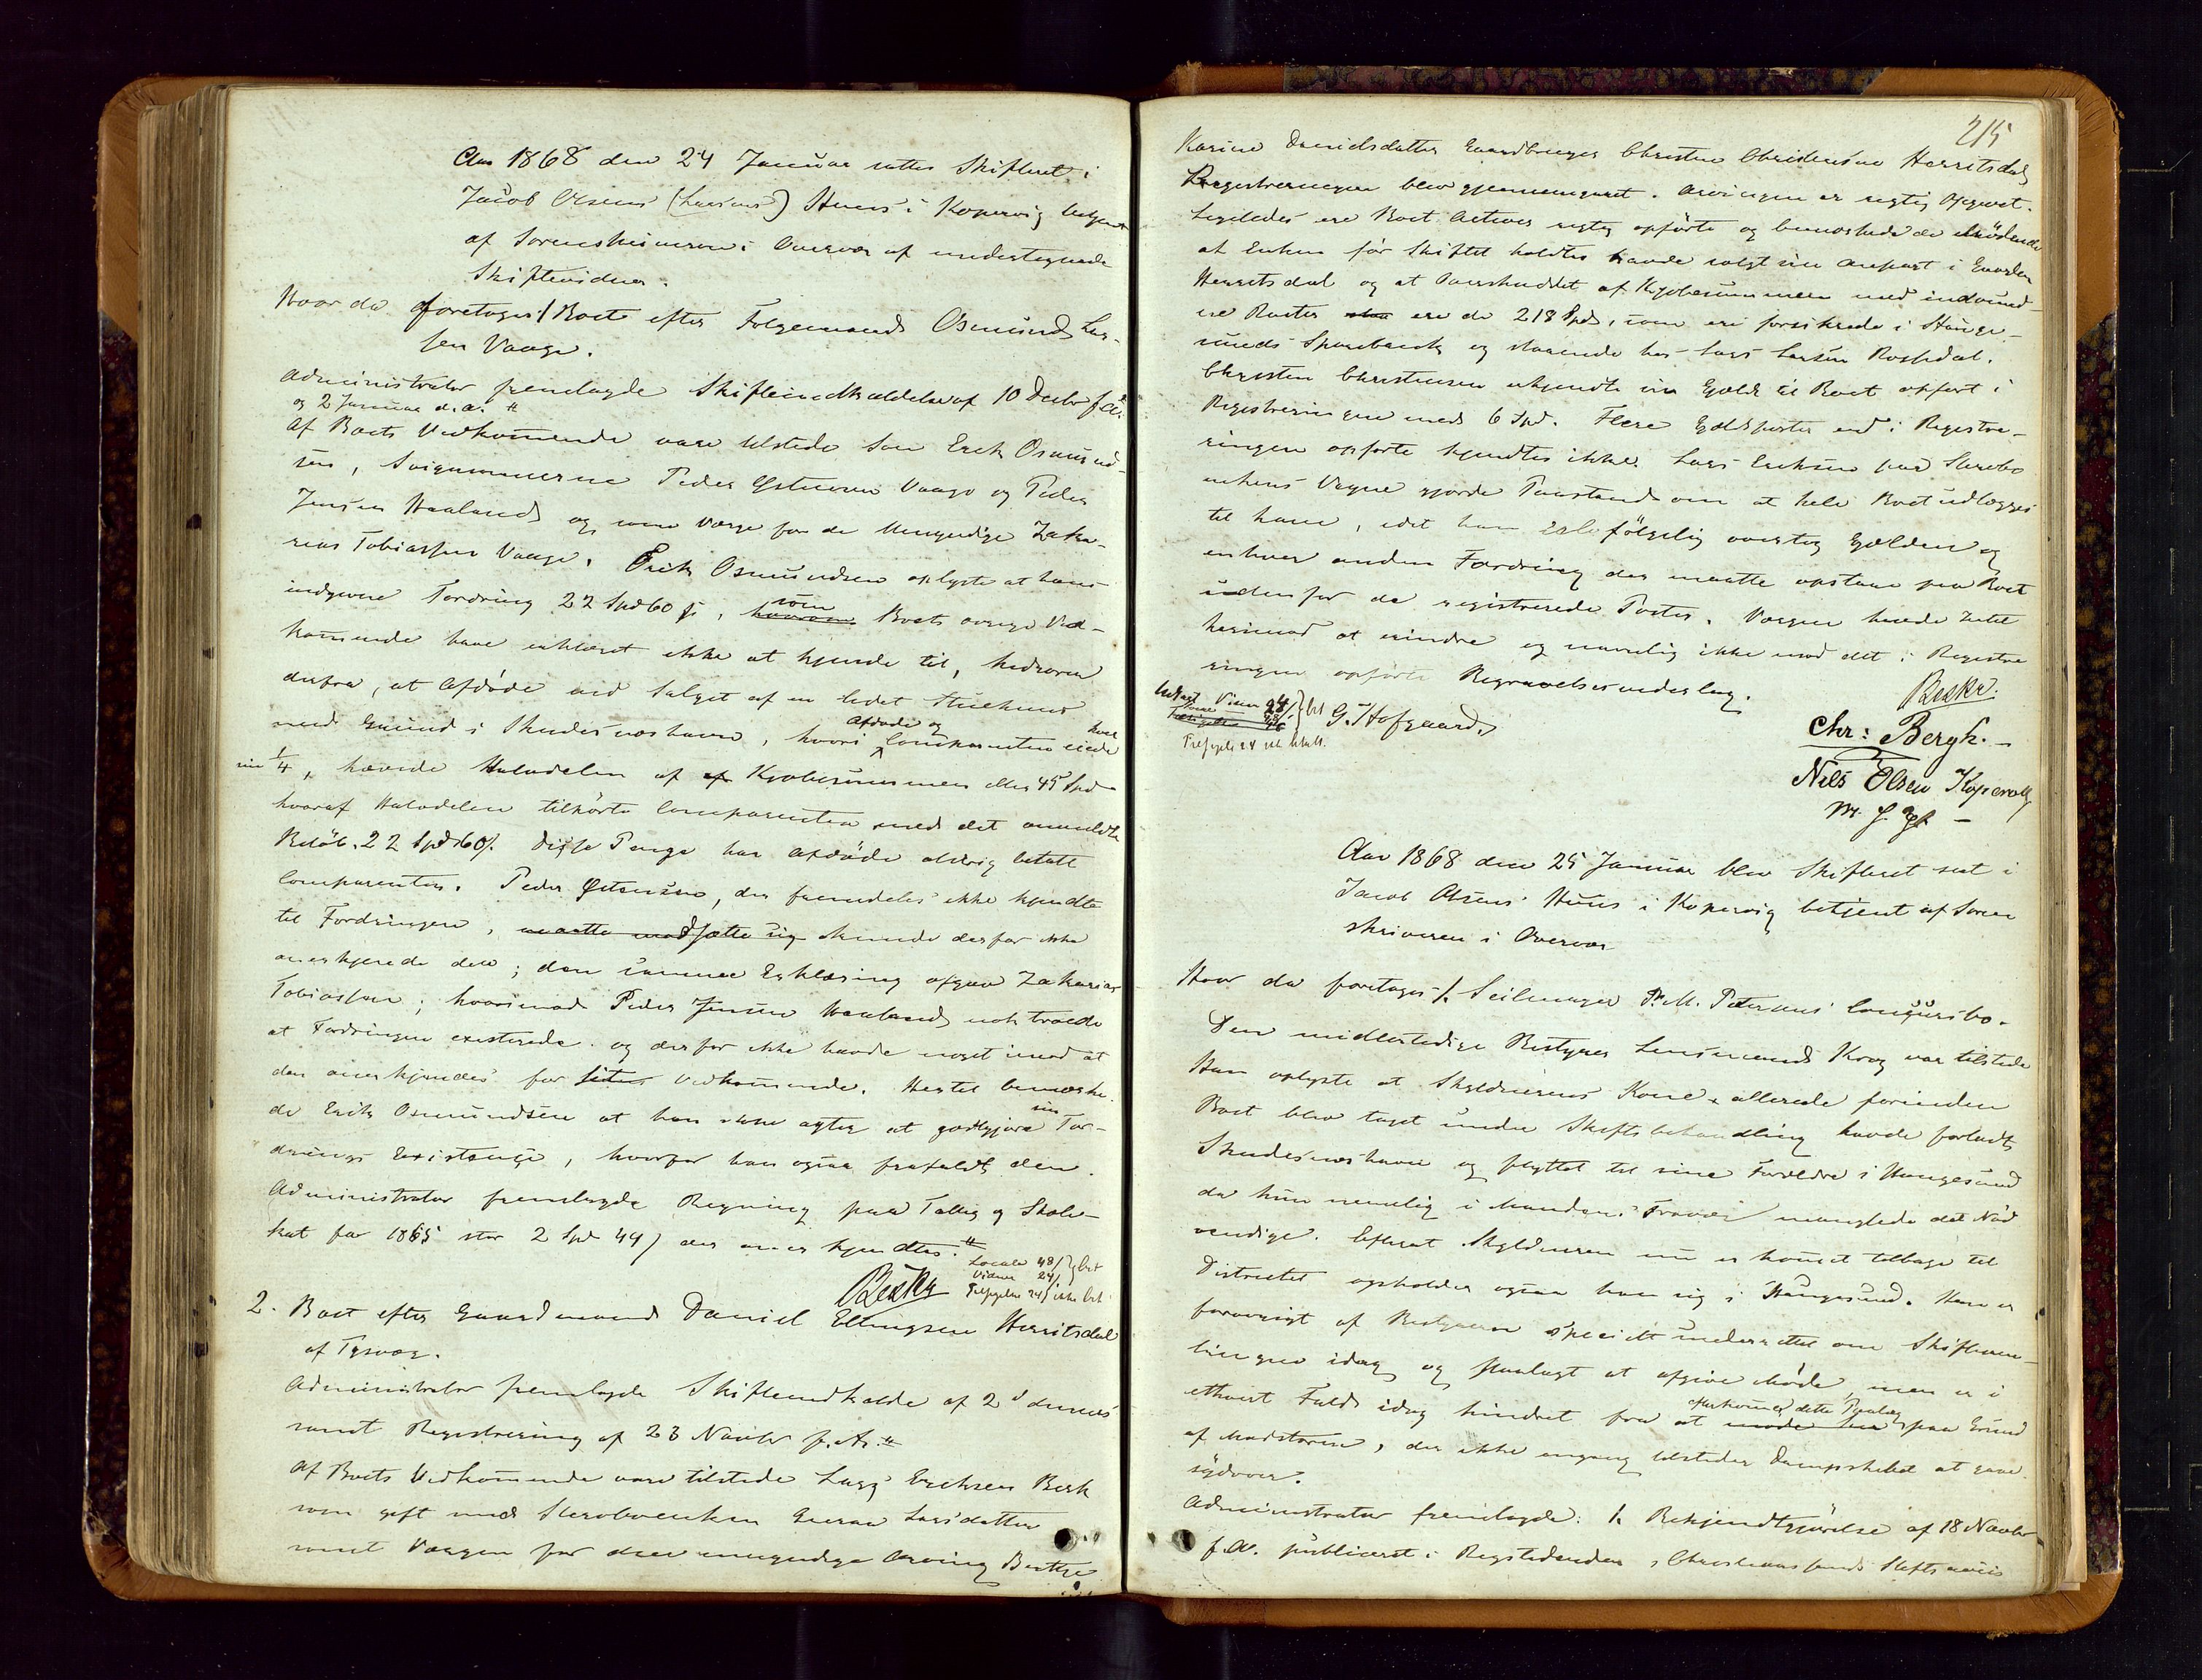 Aar 1868 den 24 Januar sattes Skifteret i
Jacob Olsens (Larsens) Huus i Kopervig betjent
af Sorenskriveren i Overvær af undertegnede
Skiftevidner.
Hvor da foretoges 1/ Boet efter Følgemand Osmund Lar-
sen Vaage.
Administrator fremlagde Skifteindkaldelse af 10 Decbr f.A.
og 2 Januar d.A. #
Af Boets Vedkommende vare tilstede Søn Erik Osmund-
sen, Svigersønnerne Peder Østensen Vaage og Peder
Jensen Haaland og som Værge for de Umyndige Zaka-
rias Tobiassen Vaage. Erik Osmundsen oplyste at hans
indgivne Fordring 22 Spd 60 s, som Boets øvrige Ved-
kommende have erklæret ikke at kjende til, hidrører
derfra, at Afdøde ved Salget af en liden
med Grund i Skudesneshavn, hvori Afdøde og Comparenten eiede hver
sin 1/4, hævede Halvdelen af Kjøbesummen eller 45 Spd
hvoraf Halvdelen tilhørte Comparenten med det anmeldte
Beløb. 22 Spd 60 s. Disse Penge har Afdøde aldrig betalt
Comparenten. Peder Østensen, der fremdeles ikke kjendte
til Fordringen, maatte modsætte sig kunde derfor ikke
anerkjende den; den samme Erklæring afgav Zakarias
Tobiassen; hvorimod Peder Jensen Haaland nok troede
at Fordringen existerede og derfor ikke havde noget imod at
den anerkjendes for sit Vedkommende. Hertil bemærke-
de Erik Osmundsen at han ikke agter at godtgjøre sin For-
drings Existence, hvorfor han ogsaa frafaldt den.
Administrator fremlagde Regning paa Fattig og Skole-
skat for 1865 stor 2 Spd 44 s der anerkjendtes. #
Locale 48 s } bet
Vidner 24 s
24 s ikke bet
Beskr
2. Boet efter Gaardmand Daniel Eltingsen Herritsdal
af Tysvær.
Administrator fremlagde Skifteindkalde af 2 dennes
samt Registrering af 23 Novbr f.A. #
Af Boets Vedkommende vare tilstede Lars Erichsen Berk
som gift med Stervboenken Larsdatter
samt Værgen for den umyndige Arving Berthe
215
Karine Danielsdatter Gaardbruger Christen Christensen Herritsdal
Registreringen blev gjennemgaaet. Arvingen er rigtig Opgivet.
Ligeledes ere Boets Activer rigtig opførte og bemærkede de Mødende
at Enken før Skiftet holdtes havde solgt sin Anpart i Gaarden
Herritsdal og at Overskuddet af Kjøbesummen med indvund-
ne Renter ere de 218 Spd, som ere forsikrede i Hauge-
sunds Sparebank og staaende hos Lars Larsen Rossedal.
Christen Christensen erkjendte sin Gjæld til Boet opført i
Registreringen med 6 Spd. Flere Gjældsposter end i Registre-
ringen opførte kjendtes ikke. Lars Eriksen paa Stervbo
enkens Vegne gjorde Paastand om at hele Boet udlægges
til ham, idet han selvfølgelig overtog Gjælden og
enhver anden Fordring der maatte opstaae paa Boet
udenfor de registrerede Poster. Værgen havde Intet
herimod at erindre og navnlig ikke mod det i Registre
ringen opførte Begravelsesudlæg.
Vidner 24 s } bet
48 s
24 ikke betalt.
G. Hofgaard.
Beskr.
Chr: Bergh. –
Nils Olsen Kopervig
m. f. P. –
Aar 1868 den 25 Januar blev Skifteret sat i
Jacob Olsens Huus i Kopervig betjent af Soren
skriveren i Overvær
Hvor da foretoges 1/. Seilmager P. M. Petersens Concursbo.
Den midlertidige Bestyrer Lensmand Krog var tilstede
Han oplyste at Skyldnerens Kone allerede forinden
Boet blev taget under Skiftebehandling havde forladt
Skudesneshavn og flyttet til sine Forældre i Haugesund
da hun nemlig i Mandens Fravær manglede det Nød
vendige. Efterat Skyldneren nu er kommet tilbage til
Districtet opholder ogsaa han sig i Haugesund. Han er
forøvrigt af Bestyreren specielt underrettet om Skiftesam-
lingen idag og paalagt at afgive Møde, men er i
ethvert Fald idag hindret fra at møde her efterkomme dette Paalæg paa Grund
af Modstorm, der ikke engang tilsteder Dampskibet at gaae
sydover.
Administrator fremlagde: 1. Bekjendtgjørelse af 18 Novbr
f.A. publiceret i Rigstidenden, Christianssands Stiftsavis